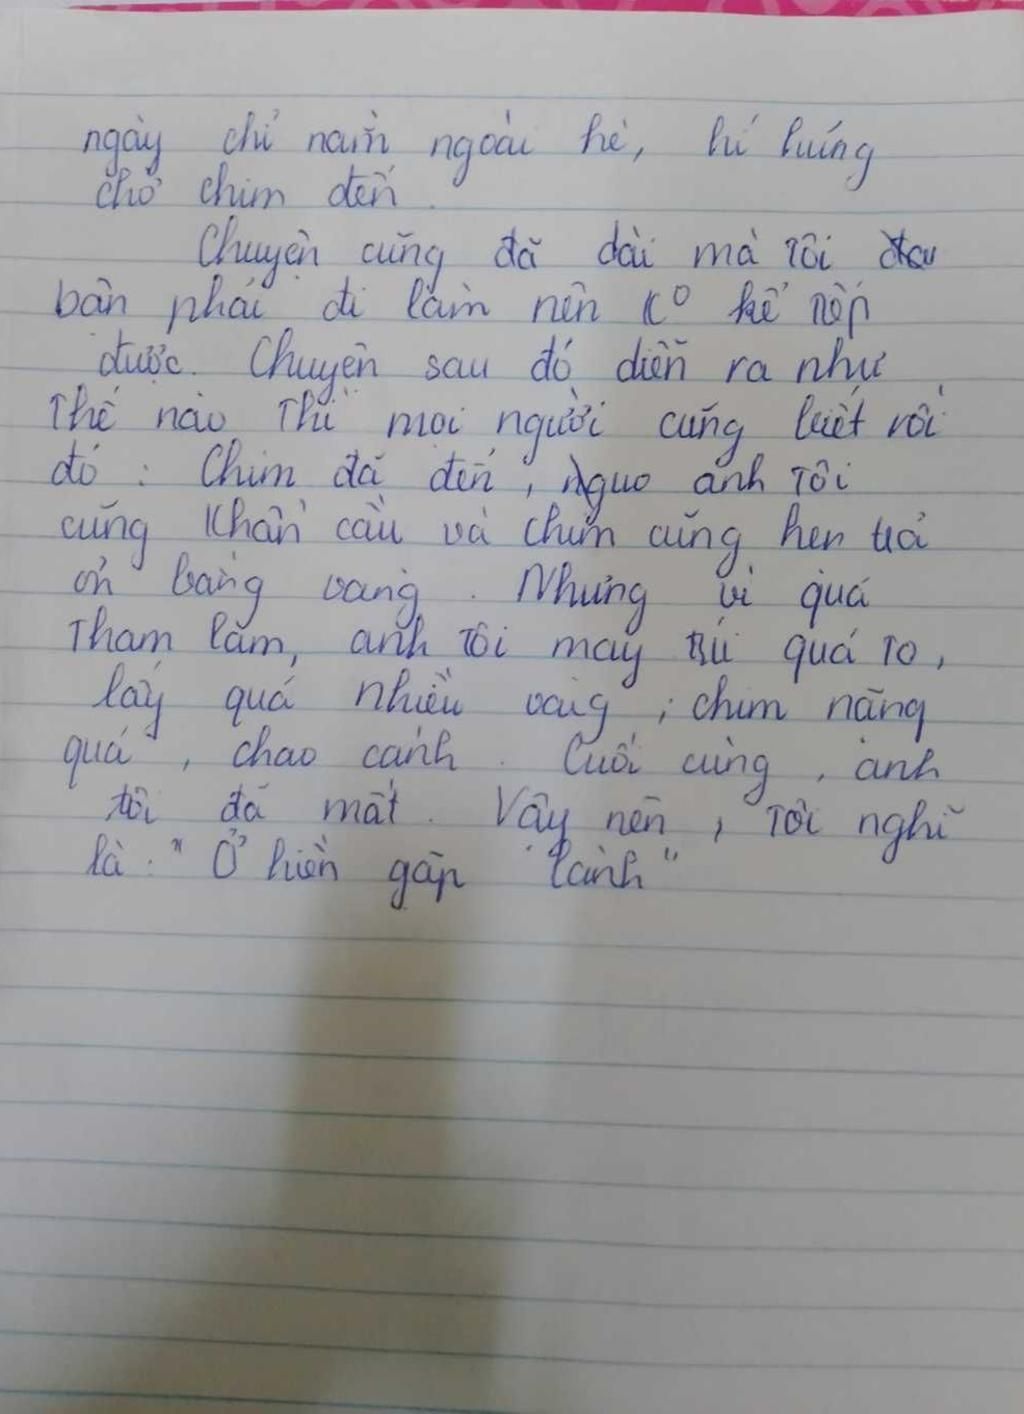 ngày chỉ nằm ngoài hè, hí hứng
chờ chim đến.
Chuyện cũng đã dài mà tôi
bận phải đi làm nên k⁰ kể tiếp
được. Chuyện sau đó diễn ra như
thế nào thì mọi người cũng biết rồi
đó: Chim đã đến, người anh tôi
cũng khẩn cầu và chim cũng hẹn trả
ơn bằng vàng. Nhưng vì quá
tham lam, anh tôi may túi quá to,
lấy quá nhiều vàng; chim nặng
quá, chao cánh. Cuối cùng, anh
tôi đã mất. Vậy nên, tôi nghĩ
là: "Ở hiền gặp lành"